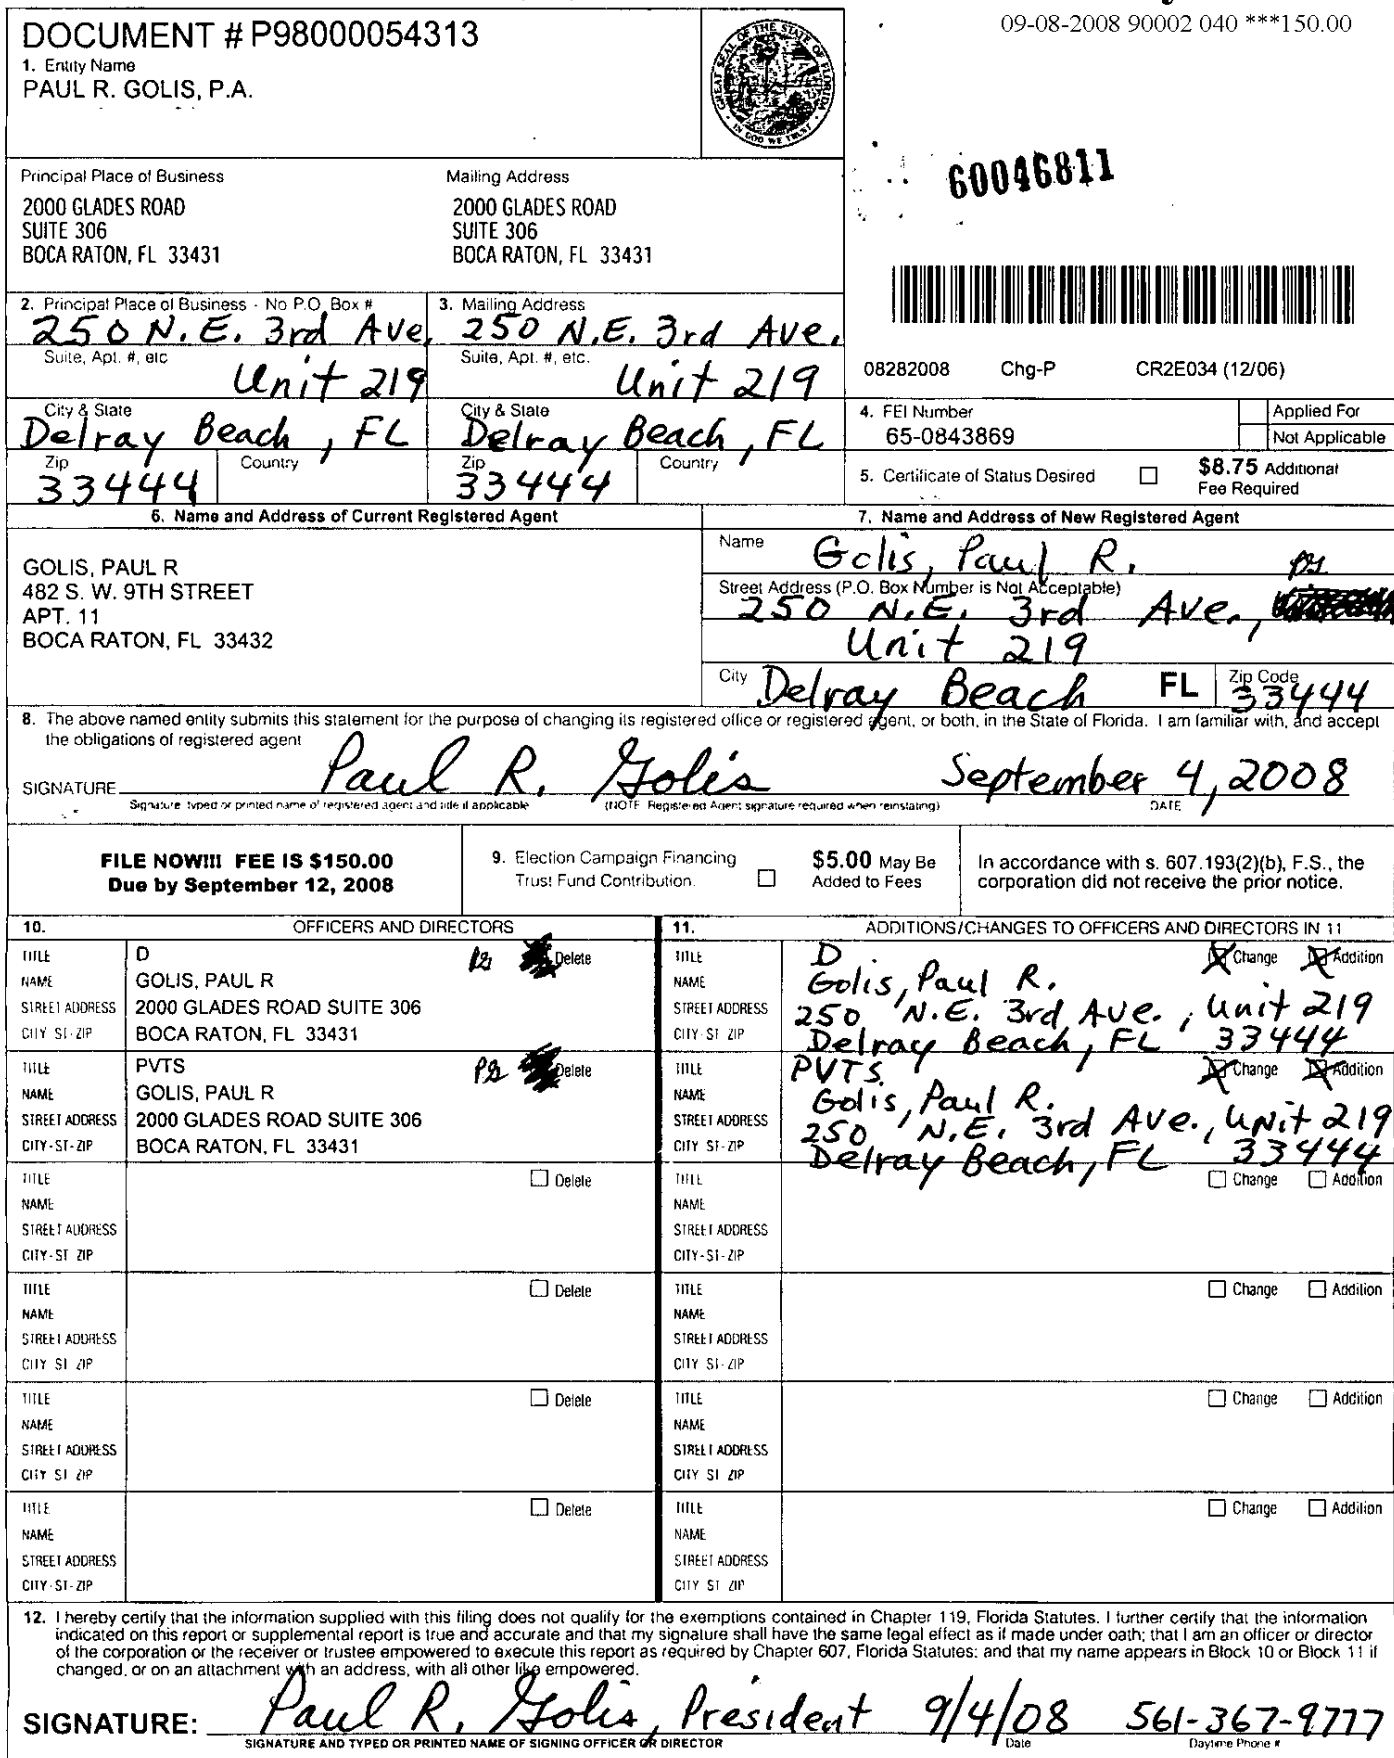 09-08-2008 90002 040 ***150.00
DOCUMENT # P98000054313
1. Entity Name
PAUL R. GOLIS, P.A.
GREAT SEAL OF THE STATE OF FLORIDA
IN GOD WE TRUST
60046811
Principal Place of Business
2000 GLADES ROAD
SUITE 306
BOCA RATON, FL 33431
Mailing Address
2000 GLADES ROAD
SUITE 306
BOCA RATON, FL 33431
2. Principal Place of Business - No P.O. Box #
250 N.E. 3rd Ave.
Suite, Apt. #, etc
Unit 219
City & State
Delray Beach, FL
Zip Country
33444
3. Mailing Address
250 N.E. 3rd Ave.
Suite, Apt. #, etc.
Unit 219
City & State
Delray Beach, FL
Zip Country
33444
08282008 Chg-P CR2E034 (12/06)
4. FEI Number
65-0843869
Applied For
Not Applicable
5. Certificate of Status Desired
$8.75 Additional
Fee Required
6. Name and Address of Current Registered Agent
GOLIS, PAUL R
482 S. W. 9TH STREET
APT. 11
BOCA RATON, FL 33432
7. Name and Address of New Registered Agent
Name
Golis, Paul R.
Street Address (P.O. Box Number is Not Acceptable)
250 N.E. 3rd Ave.,
Unit 219
City Delray Beach FL Zip Code 33444
8. The above named entity submits this statement for the purpose of changing its registered office or registered agent, or both, in the State of Florida. I am familiar with, and accept
the obligations of registered agent
SIGNATURE Paul R. Golis September 4, 2008
Signature typed or printed name of registered agent and title if applicable (NOTE Registered Agent signature required when reinstating) DATE
FILE NOW!!! FEE IS $150.00
Due by September 12, 2008
9. Election Campaign Financing
Trust Fund Contribution.
$5.00 May Be
Added to Fees
In accordance with s. 607.193(2)(b), F.S., the
corporation did not receive the prior notice.
10. OFFICERS AND DIRECTORS
TITLE D Delete
NAME GOLIS, PAUL R
STREET ADDRESS 2000 GLADES ROAD SUITE 306
CITY ST-ZIP BOCA RATON, FL 33431
TITLE PVTS Delete
NAME GOLIS, PAUL R
STREET ADDRESS 2000 GLADES ROAD SUITE 306
CITY-ST-ZIP BOCA RATON, FL 33431
TITLE Delete
NAME
STREET ADDRESS
CITY-ST ZIP
TITLE Delete
NAME
STREET ADDRESS
CITY ST ZIP
TITLE Delete
NAME
STREET ADDRESS
CITY ST ZIP
TITLE Delete
NAME
STREET ADDRESS
CITY-ST-ZIP
11. ADDITIONS/CHANGES TO OFFICERS AND DIRECTORS IN 11
TITLE D Change Addition
NAME Golis, Paul R.
STREET ADDRESS 250 N.E. 3rd Ave., Unit 219
CITY-ST ZIP Delray Beach, FL 33444
TITLE PVTS Change Addition
NAME Golis, Paul R.
STREET ADDRESS 250 N.E. 3rd Ave., Unit 219
CITY ST-ZIP Delray Beach, FL 33444
TITLE Change Addition
NAME
STREET ADDRESS
CITY-ST-ZIP
TITLE Change Addition
NAME
STREET ADDRESS
CITY ST-ZIP
TITLE Change Addition
NAME
STREET ADDRESS
CITY ST ZIP
TITLE Change Addition
NAME
STREET ADDRESS
CITY ST ZIP
12. I hereby certify that the information supplied with this filing does not qualify for the exemptions contained in Chapter 119, Florida Statutes. I further certify that the information
indicated on this report or supplemental report is true and accurate and that my signature shall have the same legal effect as if made under oath; that I am an officer or director
of the corporation or the receiver or trustee empowered to execute this report as required by Chapter 607, Florida Statutes; and that my name appears in Block 10 or Block 11 if
changed, or on an attachment with an address, with all other like empowered.
SIGNATURE: Paul R. Golis, President 9/4/08 561-367-9777
SIGNATURE AND TYPED OR PRINTED NAME OF SIGNING OFFICER OR DIRECTOR Date Daytime Phone #